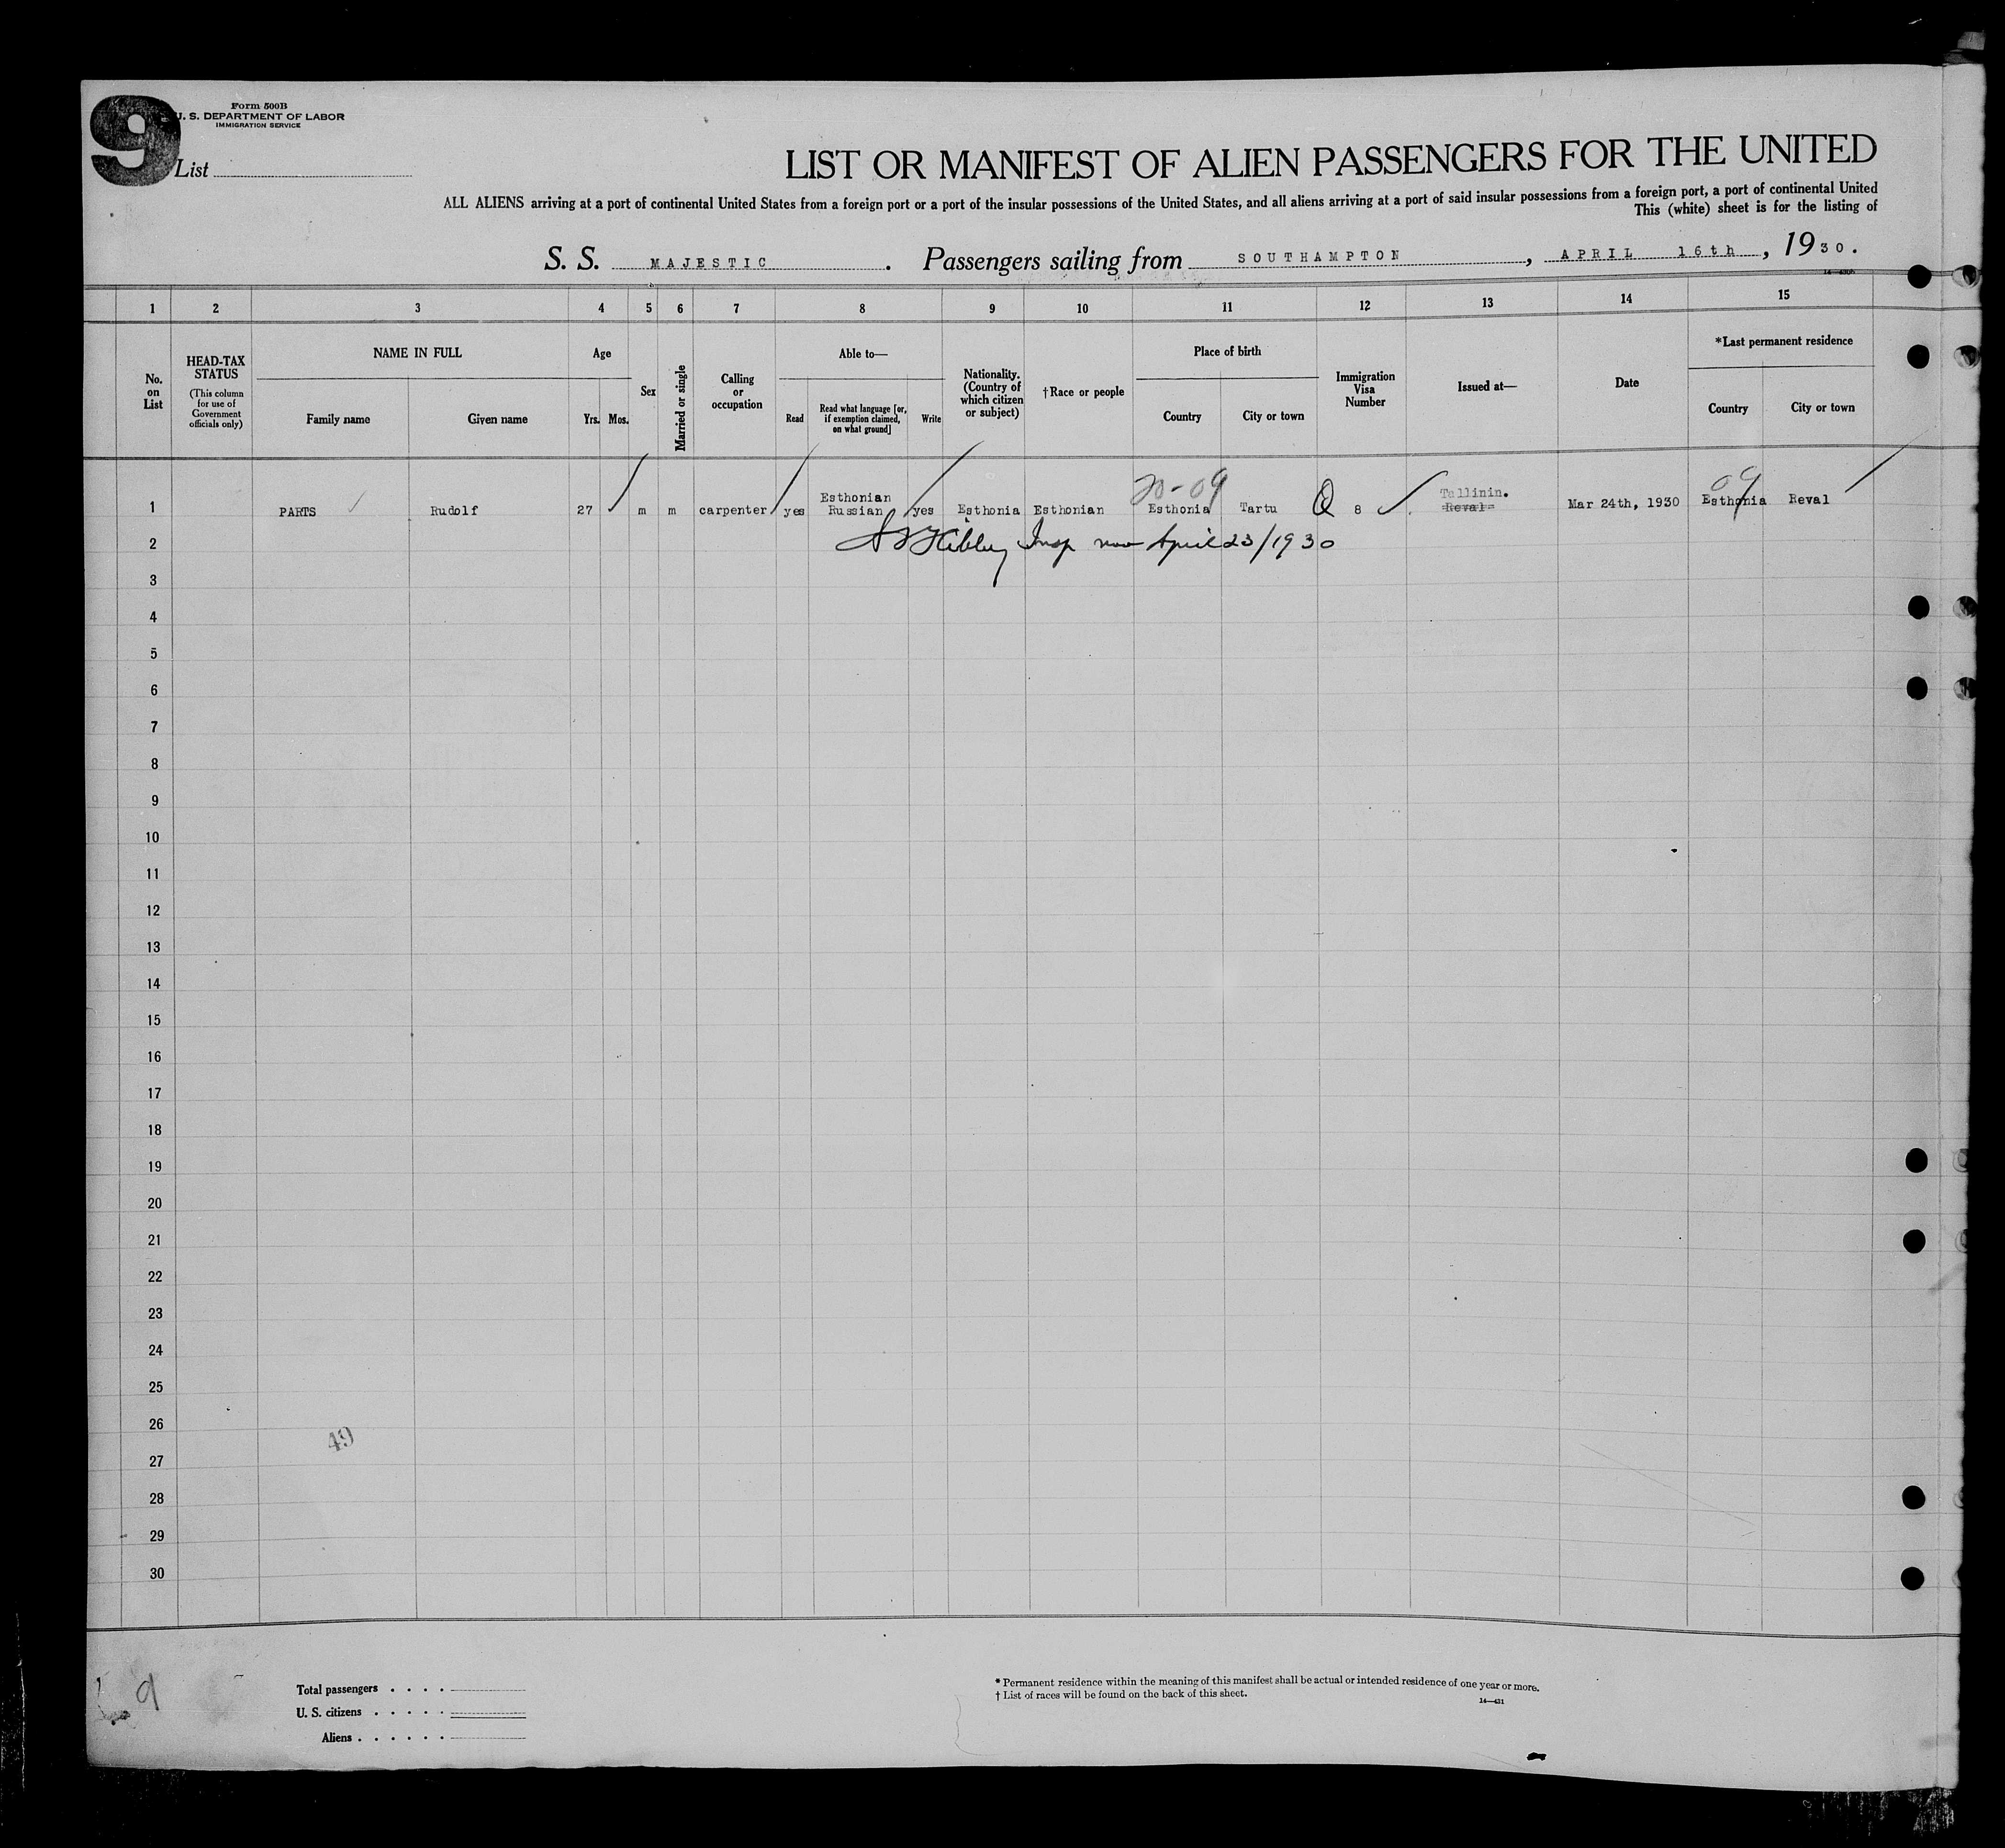 9
Form 500B
U. S. DEPARTMENT OF LABOR
IMMIGRATION SERVICE
List
LIST OR MANIFEST OF ALIEN PASSENGERS FOR THE UNITED
ALL ALIENS arriving at a port of continental United States from a foreign port or a port of the insular possessions of the United States, and all aliens arriving at a port of said insular possessions from a foreign port, a port of continental United
This (white) sheet is for the listing of
S. S. MAJESTIC. Passengers sailing from SOUTHAMPTON, APRIL 16th, 1930.
1 2 3 4 5 6 7 8 9 10 11 12 13 14 15
No. on List
HEAD-TAX STATUS
(This column for use of Government officials only)
NAME IN FULL
Family name Given name
Age
Yrs. Mos.
Sex
Married or single
Calling or occupation
Able to—
Read
Read what language [or, if exemption claimed, on what ground]
Write
Nationality. (Country of which citizen or subject)
†Race or people
Place of birth
Country City or town
Immigration Visa Number
Issued at—
Date
*Last permanent residence
Country City or town
20-09
09
Esthonian Tallinin.
1 PARTS Rudolf 27 m m carpenter yes Russian yes Esthonia Esthonian Esthonia Tartu Q 8 Reval Mar 24th, 1930 Esthonia Reval
2 Insp April 23/1930
3
4
5
6
7
8
9
10
11
12
13
14
15
16
17
18
19
20
21
22
23
24
25
26
49
27
28
29
30
9
Total passengers . . . .
U. S. citizens . . . . .
Aliens . . . . . .
* Permanent residence within the meaning of this manifest shall be actual or intended residence of one year or more.
† List of races will be found on the back of this sheet.
14—431